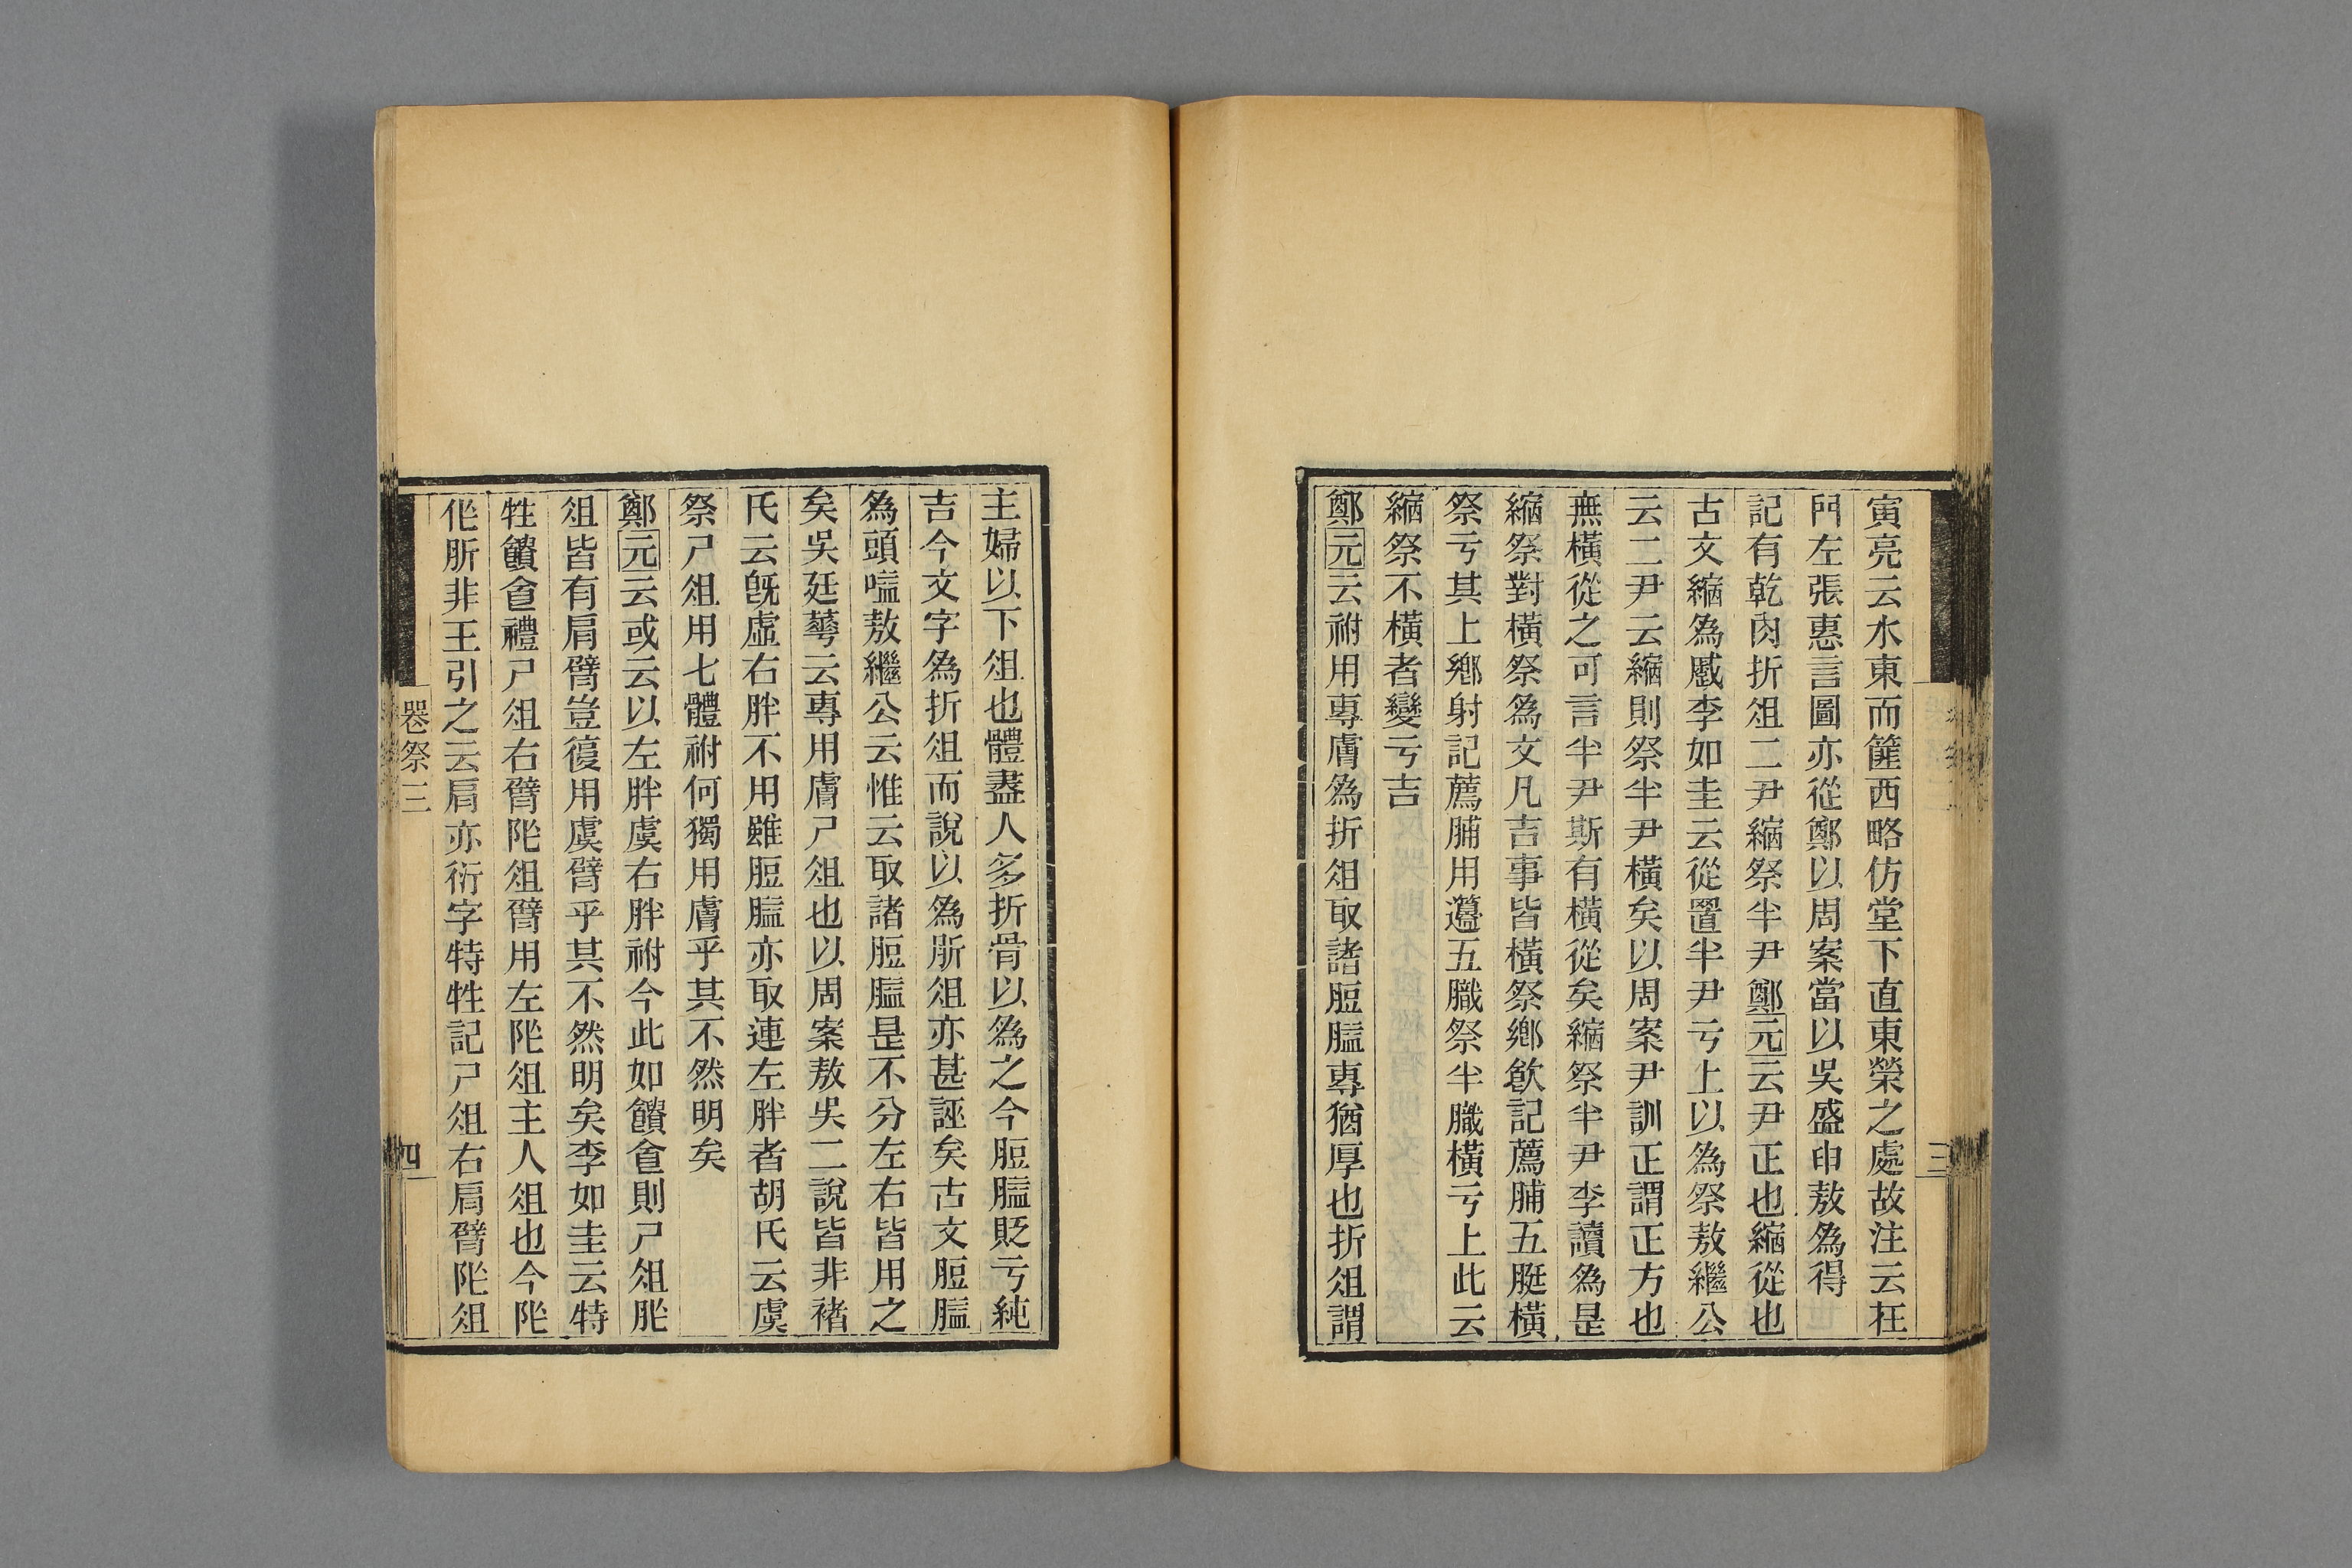 寅亮云水東而篚西略仿堂下直東榮之處故注云在
門左張惠言圖亦從鄭以周案當以吳盛申敖為得
記有乾肉折俎二尹縮祭半尹鄭元云尹正也縮從也
古文縮為蹙李如圭云從置半尹亏上以為祭敖繼公
云二尹云縮則祭半尹橫矣以周案尹訓正謂正方也
無橫從之可言半尹斯有橫從矣縮祭半尹李讀為是
縮祭對橫祭為文凡吉事皆橫祭鄉飲記薦脯五脡橫
祭亏其上鄉射記薦脯用籩五膱祭半膱橫亏上此云
縮祭不橫者變亏吉
鄭元云祔用專膚為折俎取諸脰膉專猶厚也折俎謂
三
主婦以下俎也體盡人多折骨以為之今脰膉貶亏純
吉今文字為折俎而說以為肵俎亦甚誣矣古文脰膉
為頭嗌敖繼公云惟云取諸脰膉是不分左右皆用之
矣吳廷華云專用膚尸俎也以周案敖吳二說皆非褚
氏云旣虛右胖不用雖脰膉亦取連左胖者胡氏云虞
祭尸俎用七體祔何獨用膚乎其不然明矣
鄭元云或云以左胖虞右胖祔今此如饋食則尸俎肵
俎皆有肩臂豈復用虞臂乎其不然明矣李如圭云特
牲饋食禮尸俎右臂阼俎臂用左阼俎主人俎也今阼
作肵非王引之云肩亦衍字特牲記尸俎右肩臂阼俎
喪祭三
四